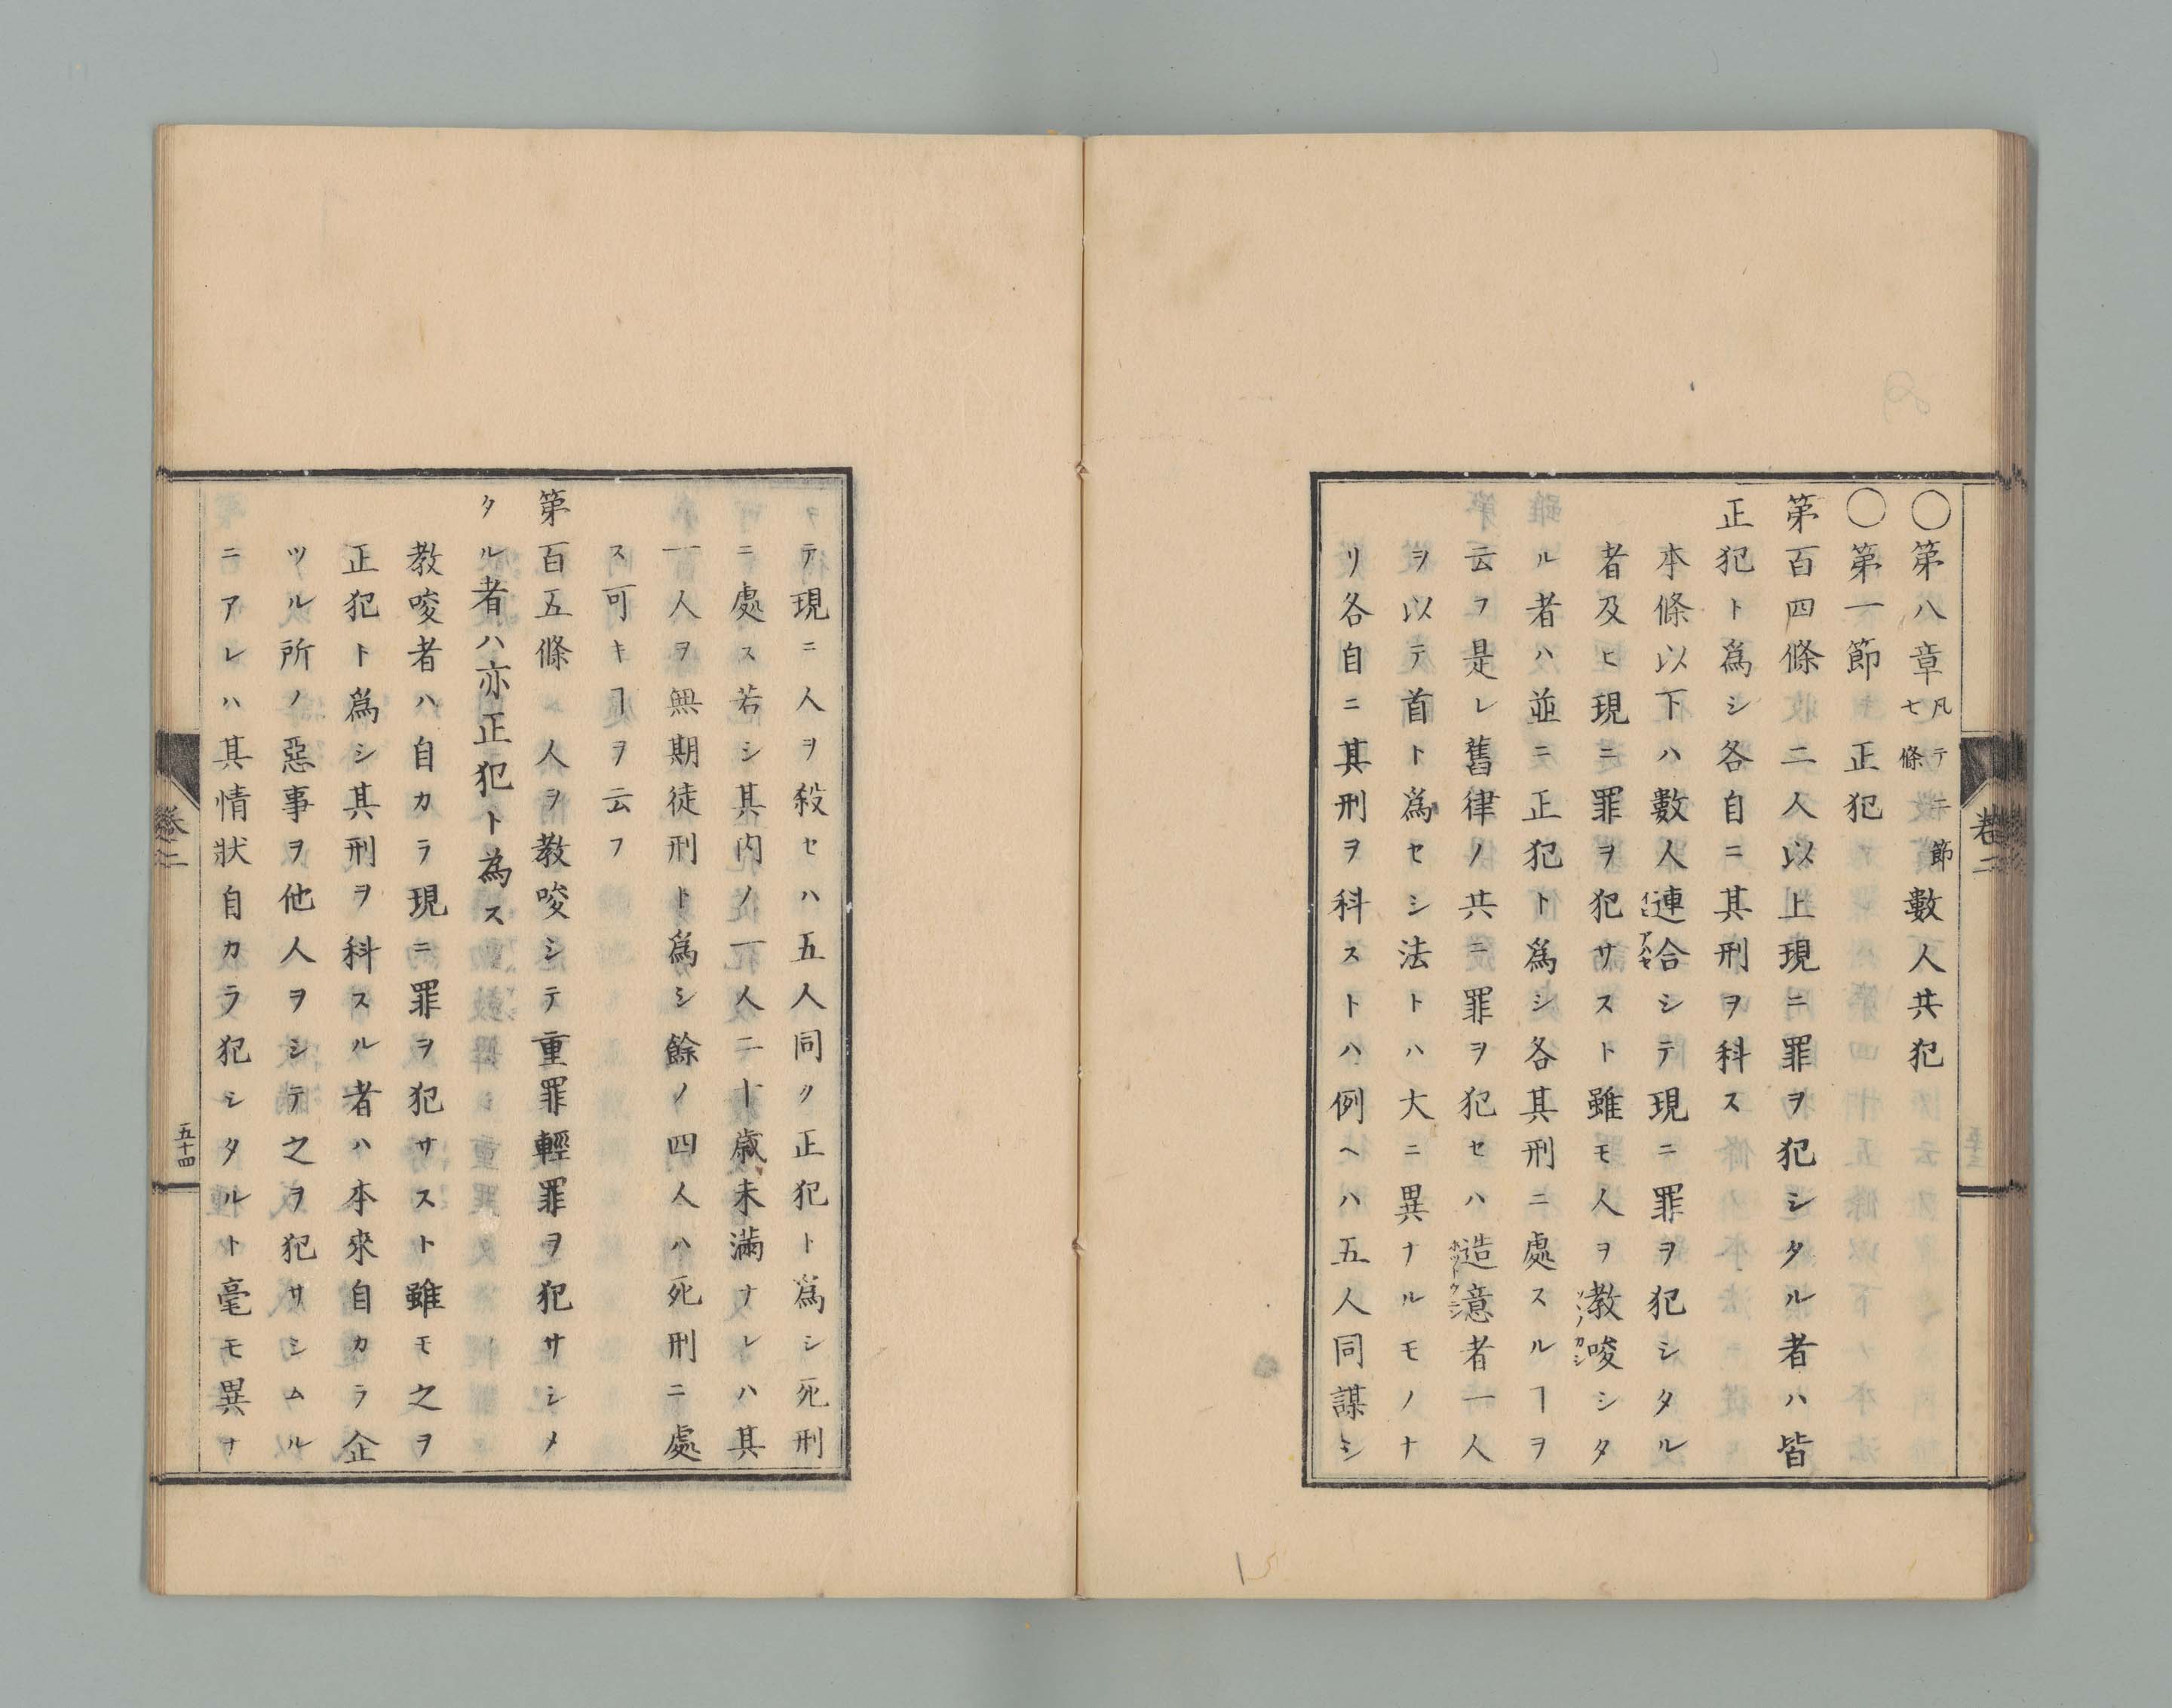 〇第八章凡テ二節七條數人共犯
〇第一節正犯
第百四條二人以上現ニ罪ヲ犯シタル者ハ皆
正犯ト爲シ各自ニ其刑ヲ科ス
本條以下ハ數人連合シテ現ニ罪ヲ犯シタル
者及ヒ現ニ罪ヲ犯サスト雖モ人ヲ教唆シタ
ル者ハ並ニ正犯ト爲シ各其刑ニ處スルヿヲ
云フ是レ舊律ノ共ニ罪ヲ犯セハ造意者一人
ヲ以テ首ト爲セシ法トハ大ニ異ナルモノナ
リ各自ニ其刑ヲ科ストハ例ヘハ五人同謀シ
卷二
テ現ニ人ヲ殺セハ五人同ク正犯ト爲シ死刑
ニ處ス若シ其内ノ一人二十歳未滿ナレハ其
一人ヲ無期徒刑ト爲シ餘ノ四人ハ死刑ニ處
ス可キヿヲ云フ
第百五條人ヲ教唆シテ重罪輕罪ヲ犯サシメ
タル者ハ亦正犯ト為ス
教唆者ハ自カラ現ニ罪ヲ犯サスト雖モ之ヲ
正犯ト爲シ其刑ヲ科スル者ハ本來自カラ企
ツル所ノ惡事ヲ他人ヲシテ之ヲ犯サシムル
ニアレハ其情状自カラ犯シタルト毫モ異ナ
卷二
五十四